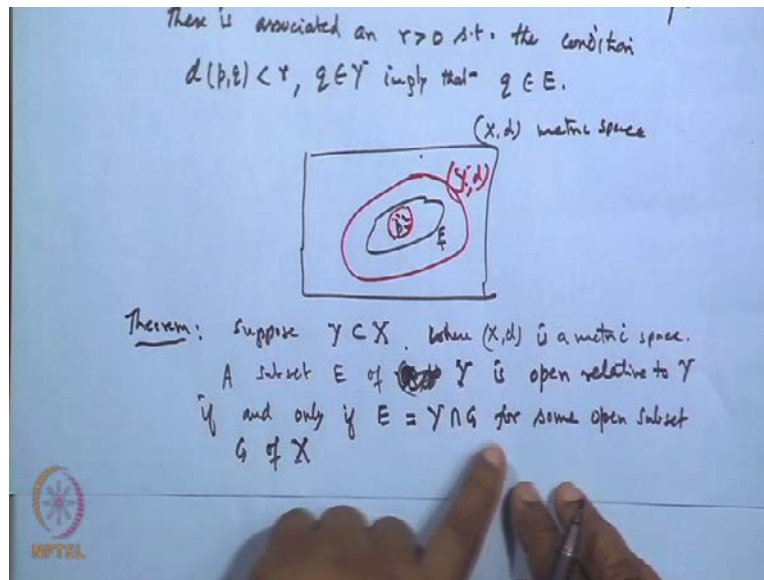 There is associated an r>0 s.t. the condition
d(p,q) < r, q ∈ Y imply that q ∈ E.
(X,d) metric space
(Y,d)
p
E
Theorem: Suppose Y ⊂ X, where (X,d) is a metric space.
A subset E of Y is open relative to Y
if and only if E = Y ∩ G for some open subset
G of X
NPTEL